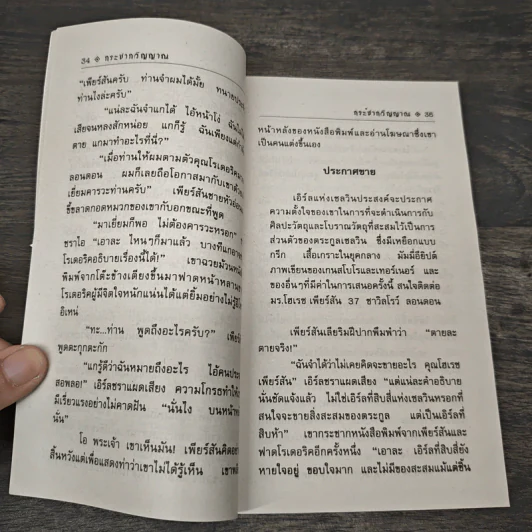 34 ❖ กระชากวิญญาณ
“เพียร์สันครับ ท่านจำผมได้มั้ย ทนาย
ท่านไงล่ะครับ”
“แน่ละฉันจำแกได้ ไอ้หน้าโง่
เสียจนหลงสักหน่อย แกก็รู้ ฉันเพียงแต่
ตาย แกมาทำอะไรที่นี่?”
“เมื่อท่านให้ผมตามตัวคุณโรเดอริค
ลอนดอน ผมก็เลยถือโอกาสมากับเขาด้วย
เยี่ยมคารวะท่านครับ” เพียร์สันชายหัว
ชี้ขลาดถอดหมวกของเขากับอกขณะที่พูด
“มาเยี่ยมก็พอ ไม่ต้องคารวะหรอก”
ชราไอ “เอาละ ไหนๆก็มาแล้ว บางทีแกอาจ
โรเดอริคอธิบายเรื่องนี้ได้!” เขาฉวยม้วนหนังสือ
พิมพ์จากโต๊ะข้างเตียงขึ้นมาฟาดหน้าหลาน
โรเดอริคผู้มีจิตใจหนักแน่นได้แต่ยิ้มอย่างไม่รู้
อิเหน่
“ทะ...ท่าน พูดถึงอะไรครับ?”
พูดตะกุกตะกัก
“แกรู้ดีว่าฉันหมายถึงอะไร ไอ้คน
สอพลอ!” เอิร์ลชราแผดเสียง ความโกรธทำให้
มีเรี่ยวแรงอย่างไม่คาดฝัน “นั่นไง บนหน้า
นั่น”
โอ พระเจ้า เขาเห็นมัน! เพียร์สันคิดอย่าง
สิ้นหวังแต่เพื่อแสดงท่าว่าเขาไม่ได้รู้เห็น
กระชากวิญญาณ ❖ 35
หน้าหลังของหนังสือพิมพ์และอ่านโฆษณาซึ่งเขา
เป็นคนแต่งขึ้นเอง
ประกาศขาย
เอิร์ลแห่งเซลวินประสงค์จะประกาศ
ความตั้งใจของเขาในการที่จะดำเนินการกับ
ศิลปะวัตถุและโบราณวัตถุที่สะสมไว้เป็นการ
ส่วนตัวของตระกูลเซลวิน ซึ่งมีเหยือกแบบ
กรีก เสื้อเกราะในยุคกลาง มัมมี่อียิปต์
ภาพเขียนของเกนสโบโรและเทอร์เนอร์ และ
ของอื่นๆที่มีค่าในการเสนอครั้งนี้ สนใจติดต่อ
มร.โฮเรซ เพียร์สัน 37 ชาวิลโรว์ ลอนดอน
เพียร์สันเลียริมฝีปากพึมพำว่า “ตายละ
ตายจริง!”
“ฉันจำได้ว่าไม่เคยคิดจะขายอะไร คุณโฮเรซ
เพียร์สัน” เอิร์ลชราแผดเสียง “แต่แน่ละคำอธิบาย
นั่นชัดแจ้งแล้ว ไม่ใช่เอิร์ลที่สิบสี่แห่งเซลวินหรอกที่
สนใจจะขายสิ่งสะสมของตระกูล แต่เป็นเอิร์ลที่
สิบห้า” เขากระชากหนังสือพิมพ์จากเพียร์สันและ
ฟาดโรเดอริคอีกครั้งหนึ่ง “เอาละ เอิร์ลที่สิบสี่ยัง
หายใจอยู่ ขอบใจมาก และไม่มีของสะสมแม้แต่ชิ้น